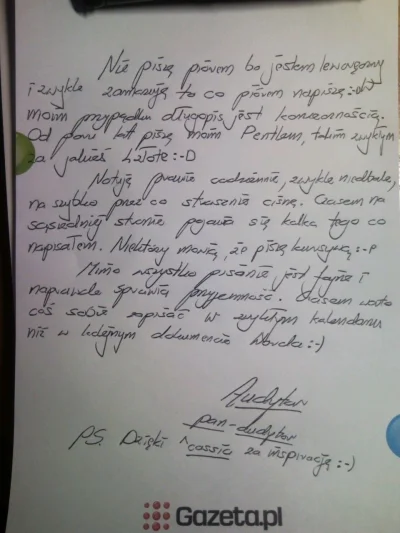 Nie piszę piórem bo jestem leworęczny
i zwykle zamazuję to co piórem napiszę :-d W
moim przypadku długopis jest koniecznością.
Od paru lat piszę moim Pentlem, takim zwykłym
za jakieś 4 złote :-D
Notuję prawie codziennie, zwykle niedbale,
na szybko przez co strasznie cisnę. Czasem na
sąsiedniej stronie pojawia się kalka tego co
napisałem. Niektórzy mówią, że piszę kursywą :-p
Mimo wszystko pisanie jest fajne i
naprawdę sprawia przyjemność. Czasem warto
coś sobie zapisać w zwykłym kalendarzu
niż w kolejnym dokumencie Worda :-)
Audytor
pan-audytor
PS. Dzięki ^cassia za inspirację :-)
Gazeta.pl